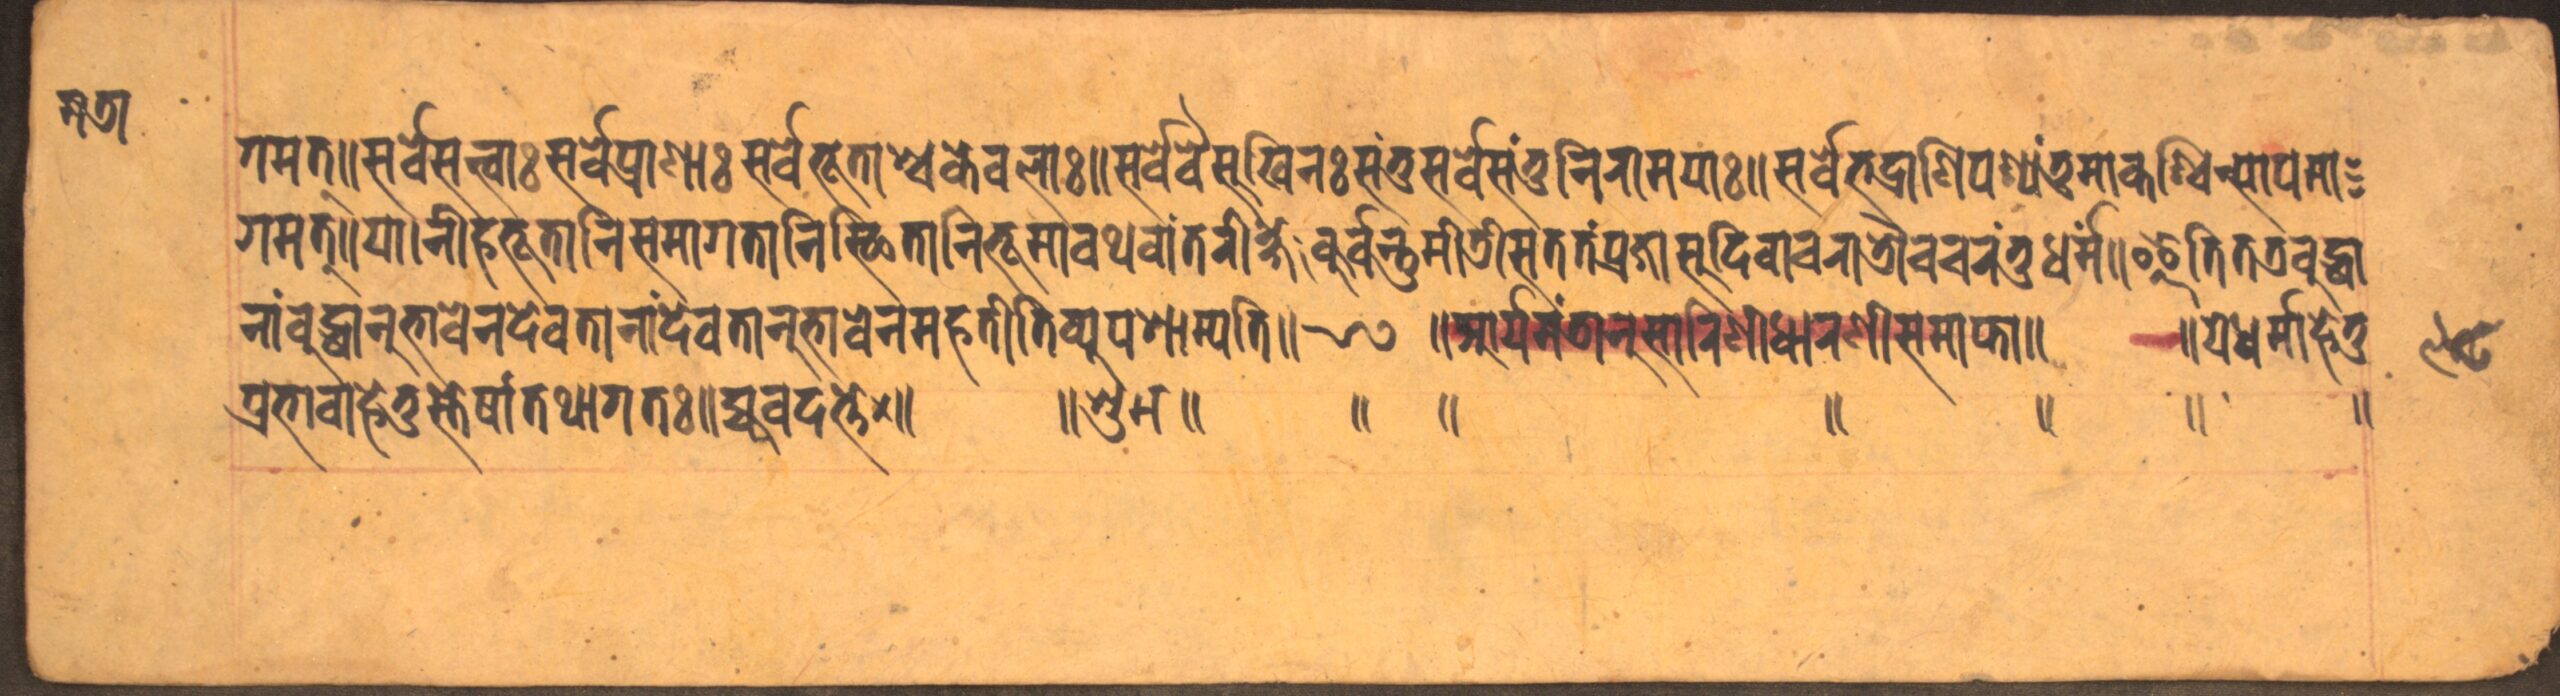 मता
गमत्॥सर्वेसत्त्वाःसर्वेप्राणाःसर्वेभूताश्चकेवलाः॥सर्वेवैसूखिनःसंतुसर्वेसंतुनिरामयाः॥सर्वेभद्राणिपश्यांतुमाकश्चित्पापमा
गमत्॥या।नीहभूतानिसमागतानिस्थितानिभूमावथवांतरीक्षे।कुर्वन्तुमीत्रीसततंप्रजासूदिवाचरात्रौचचरंतुधर्मं॥इतितत्रबुद्धा
नांबुद्धानुभावेनदेवतानांदेवतानुभावेनमहतीतिव्युपशाम्यति॥ ॥आर्यमंत्रानुसारिणीधारणीसमाप्ता॥ ॥येधर्माहेतु
प्रभावाहेतुस्तेषांतथागतः॥ह्यवदत्ते॥ ॥शुभ॥ ॥ ॥ ॥ ॥ ॥ ॥